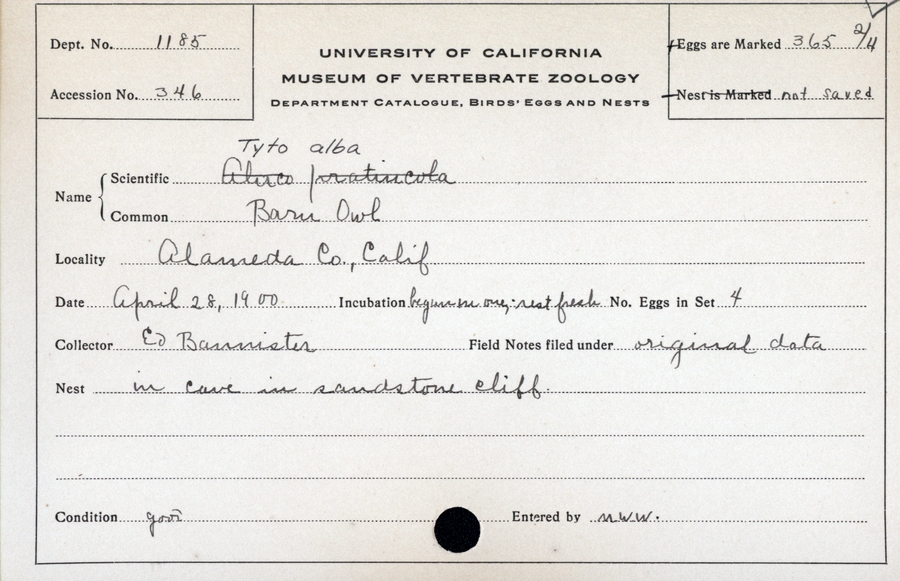 Dept. No. 1185
UNIVERSITY OF CALIFORNIA
MUSEUM OF VERTEBRATE ZOOLOGY
DEPARTMENT CATALOGUE, BIRDS' EGGS AND NESTS
Eggs are Marked 365 2/4
Accession No. 346
Nest is Marked not saved
Tyto alba
Name
Scientific Aluco pratincola
Common Barn Owl
Locality Alameda Co., Calif
Date April 28, 1900 Incubation begun in one; rest fresh No. Eggs in Set 4
Collector Ed Bannister Field Notes filed under original data
Nest in cave in sandstone cliff.
Condition good Entered by M.W.W.